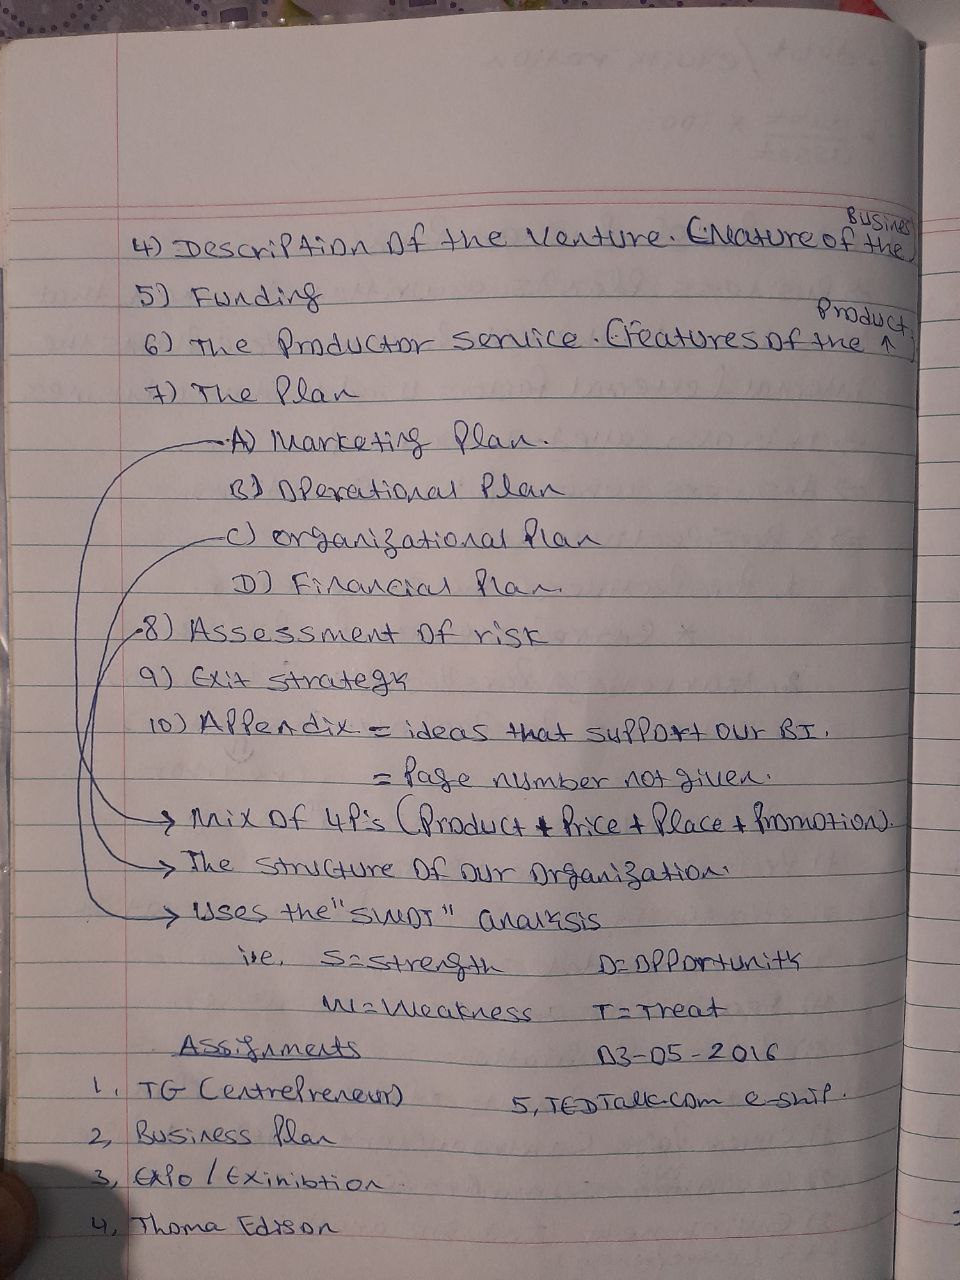 4) Description of the Venture. (Nature of the Business)
5) Funding
6) The Product or Service. (Features of the Product)
7) The Plan
A) Marketing Plan.
B) Operational Plan
C) Organizational Plan
D) Financial Plan.
8) Assessment of risk
9) Exit strategy
10) Appendix = ideas that support our BI.
= Page number not given.
→ Mix of 4P's (Product + Price + Place + Promotion).
→ The structure of our organization.
→ Uses the "SWOT" analysis
i.e. S=Strength O=Opportunity
W=Weakness T=Treat
Assignments 03-05-2016
1. TG (entrepreneur) 5, TEDTalk.com e-ship.
2, Business Plan
3, Expo / Exinibtion
4, Thoma Edison